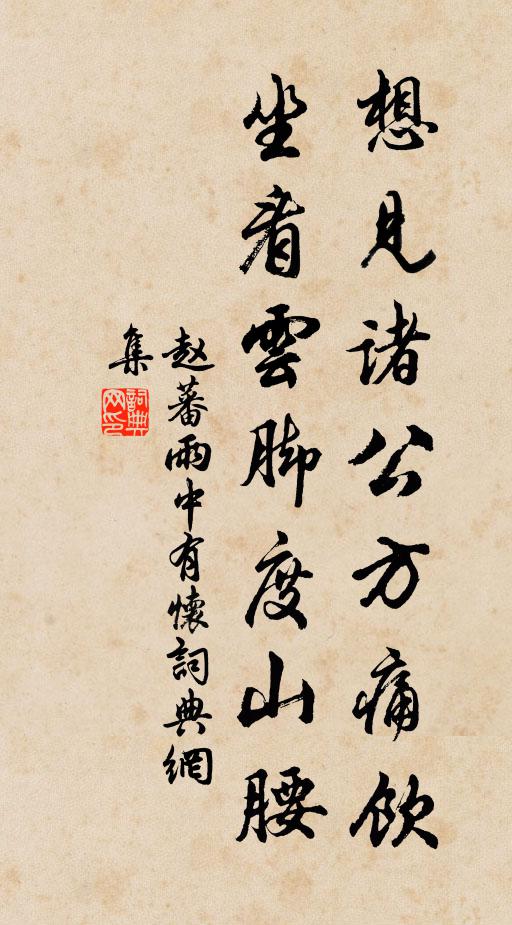 想見諸公方痛飲
坐看雲脚度山腰
赵蕃雨中有懷詞典網
集
詞典
网印